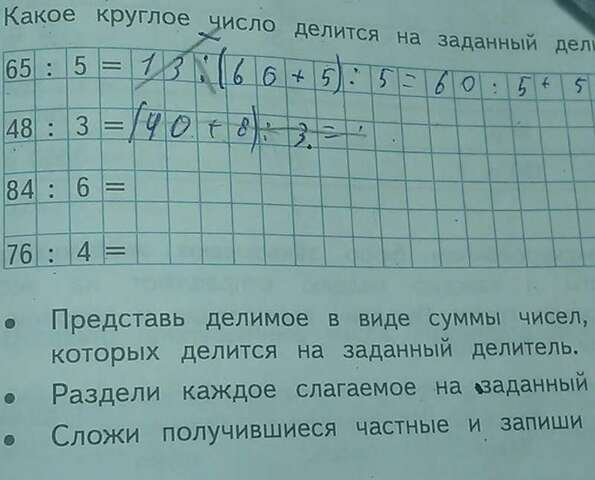 Какое круглое число делится на заданный дели
65 : 5 = 13 : (60 + 5) : 5 = 60 : 5 + 5
48 : 3 = (40 + 8) : 3. =
84 : 6 =
76 : 4 =
• Представь делимое в виде суммы чисел,
которых делится на заданный делитель.
• Раздели каждое слагаемое на заданный
• Сложи получившиеся частные и запиши